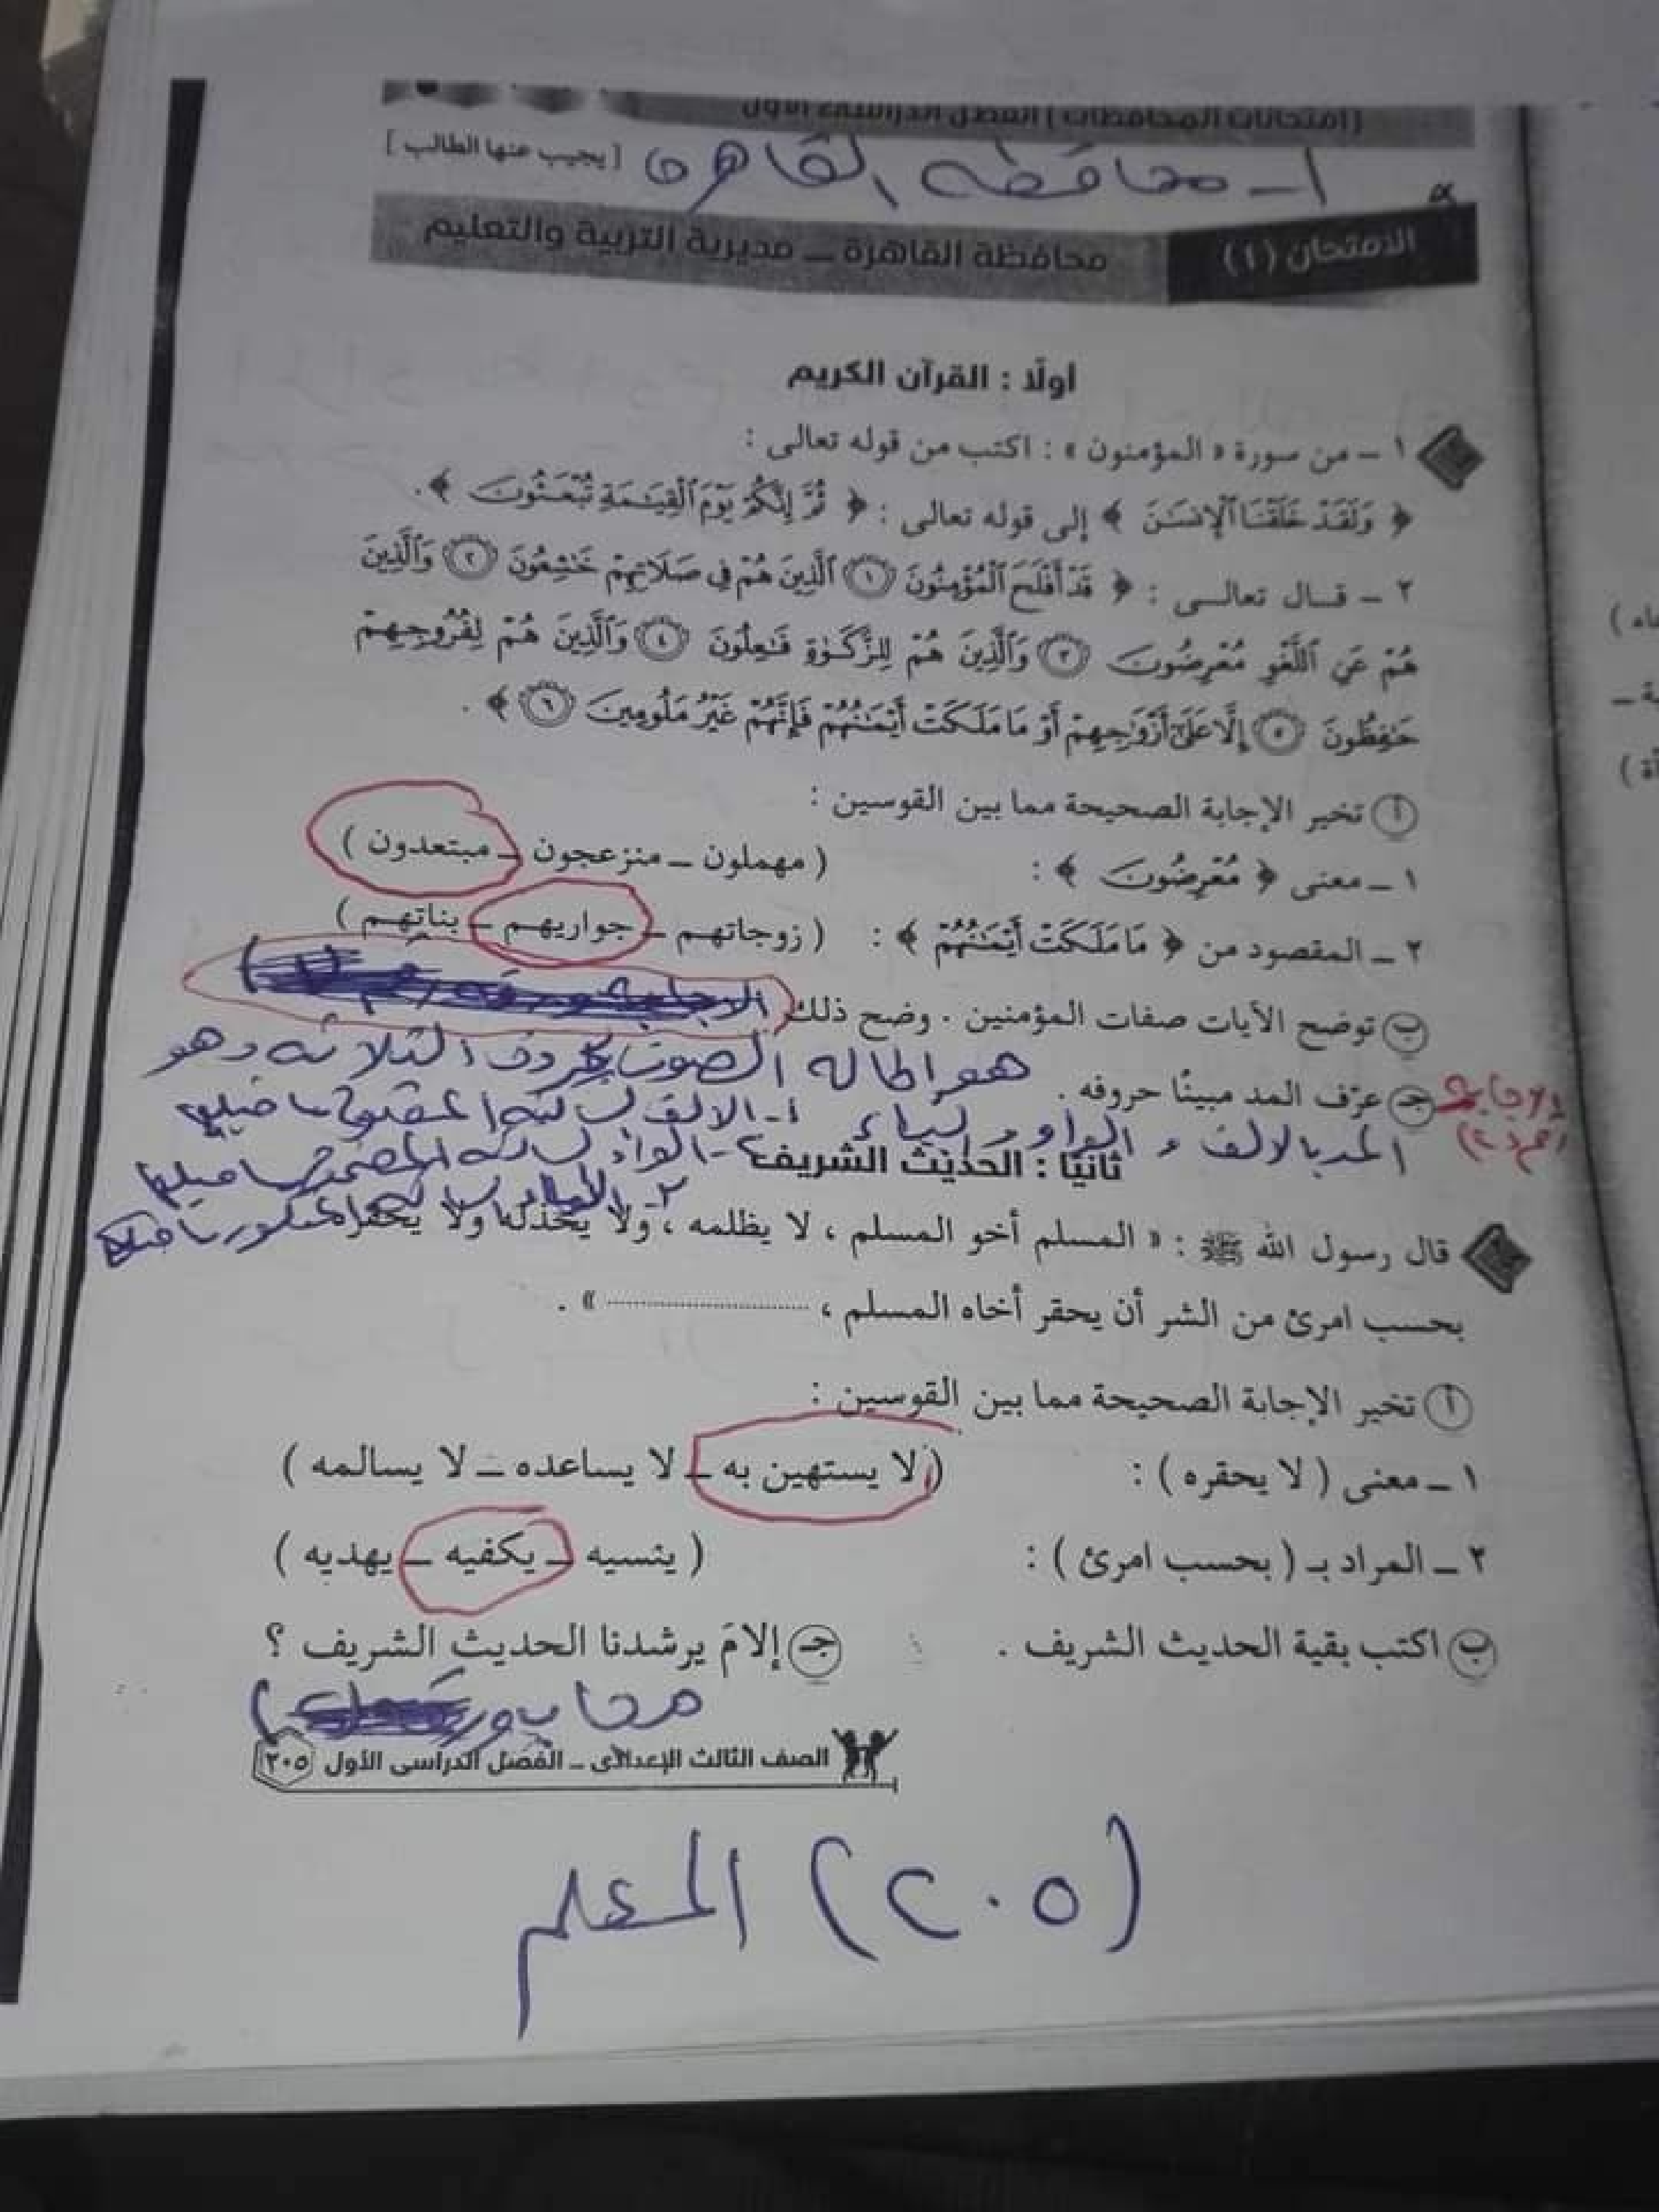 (امتحانات المحافظات) الفصل الدراسى الأول
١ - محافظة القاهرة [ يجيب عنها الطالب ]
الامتحان (١) محافظة القاهرة – مديرية التربية والتعليم
أولًا : القرآن الكريم
١ – من سورة « المؤمنون » : اكتب من قوله تعالى :
﴿ وَلَقَدْ خَلَقْنَا ٱلْإِنسَٰنَ ﴾ إلى قوله تعالى : ﴿ ثُمَّ إِنَّكُمْ يَوْمَ ٱلْقِيَٰمَةِ تُبْعَثُونَ ﴾ .
٢ – قـال تعالـى : ﴿ قَدْ أَفْلَحَ ٱلْمُؤْمِنُونَ ١ ٱلَّذِينَ هُمْ فِى صَلَاتِهِمْ خَٰشِعُونَ ٢ وَٱلَّذِينَ
هُمْ عَنِ ٱللَّغْوِ مُعْرِضُونَ ٣ وَٱلَّذِينَ هُمْ لِلزَّكَوٰةِ فَٰعِلُونَ ٤ وَٱلَّذِينَ هُمْ لِفُرُوجِهِمْ
حَٰفِظُونَ ٥ إِلَّا عَلَىٰٓ أَزْوَٰجِهِمْ أَوْ مَا مَلَكَتْ أَيْمَٰنُهُمْ فَإِنَّهُمْ غَيْرُ مَلُومِينَ ٦ ﴾ .
أ تخير الإجابة الصحيحة مما بين القوسين :
١ – معنى ﴿ مُعْرِضُونَ ﴾ : ( مهملون – منزعجون – مبتعدون )
٢ – المقصود من ﴿ مَا مَلَكَتْ أَيْمَٰنُهُمْ ﴾ : ( زوجاتهم – جواريهم – بناتهم )
ب توضح الآيات صفات المؤمنين . وضح ذلك
هو اطاله الصوت بحروف الثلاثه وهو
جـ عرّف المد مبينًا حروفه .
المد بالالف و الواو و الياء ١- الالف
ثانيًا : الحديث الشريف
قال رسول الله ﷺ : « المسلم أخو المسلم ، لا يظلمه ، ولا يخذله ولا يحقره
بحسب امرئ من الشر أن يحقر أخاه المسلم ، .................... » .
أ تخير الإجابة الصحيحة مما بين القوسين :
١ – معنى ( لا يحقره ) : ( لا يستهين به – لا يساعده – لا يسالمه )
٢ – المراد بـ ( بحسب امرئ ) : ( ينسيه – يكفيه – يهديه )
ب اكتب بقية الحديث الشريف . جـ إلامَ يرشدنا الحديث الشريف ؟
الصف الثالث الإعدادى – الفصل الدراسى الأول ٢٠٥
(٢٠٥) المعلم